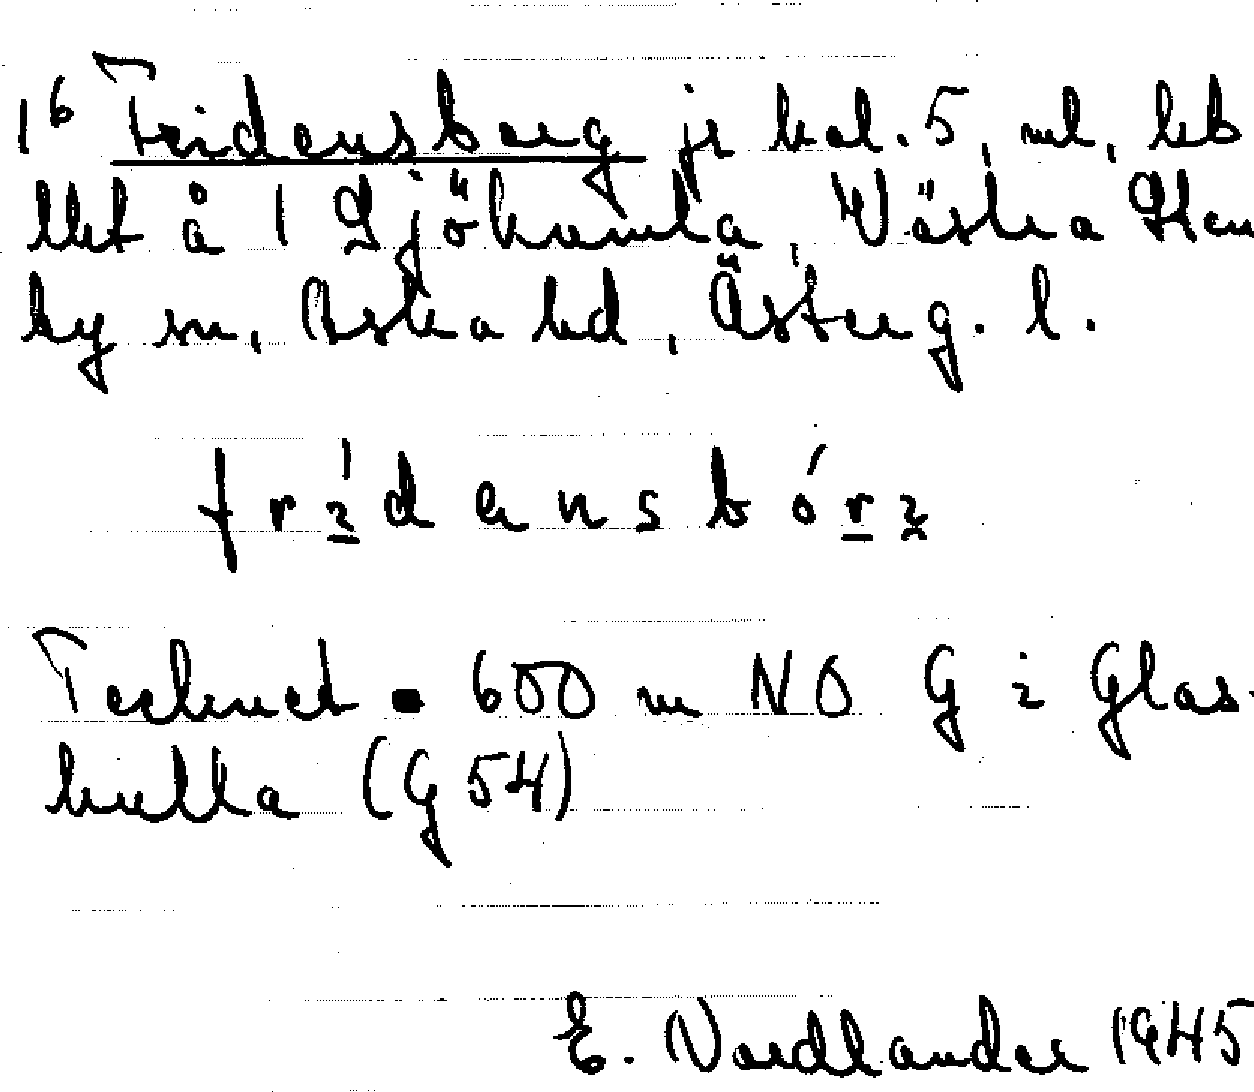 16 Fridensberg je kol. 5, ml, leb
llet å 1 Sjökumla, Västra Sten
by sn, Aska hd, Österg. l.
frı́densbórᶎ
Tecknet ▪ 600 m NO G i Glas-
hulla (G54)
E. Nordlander 1945